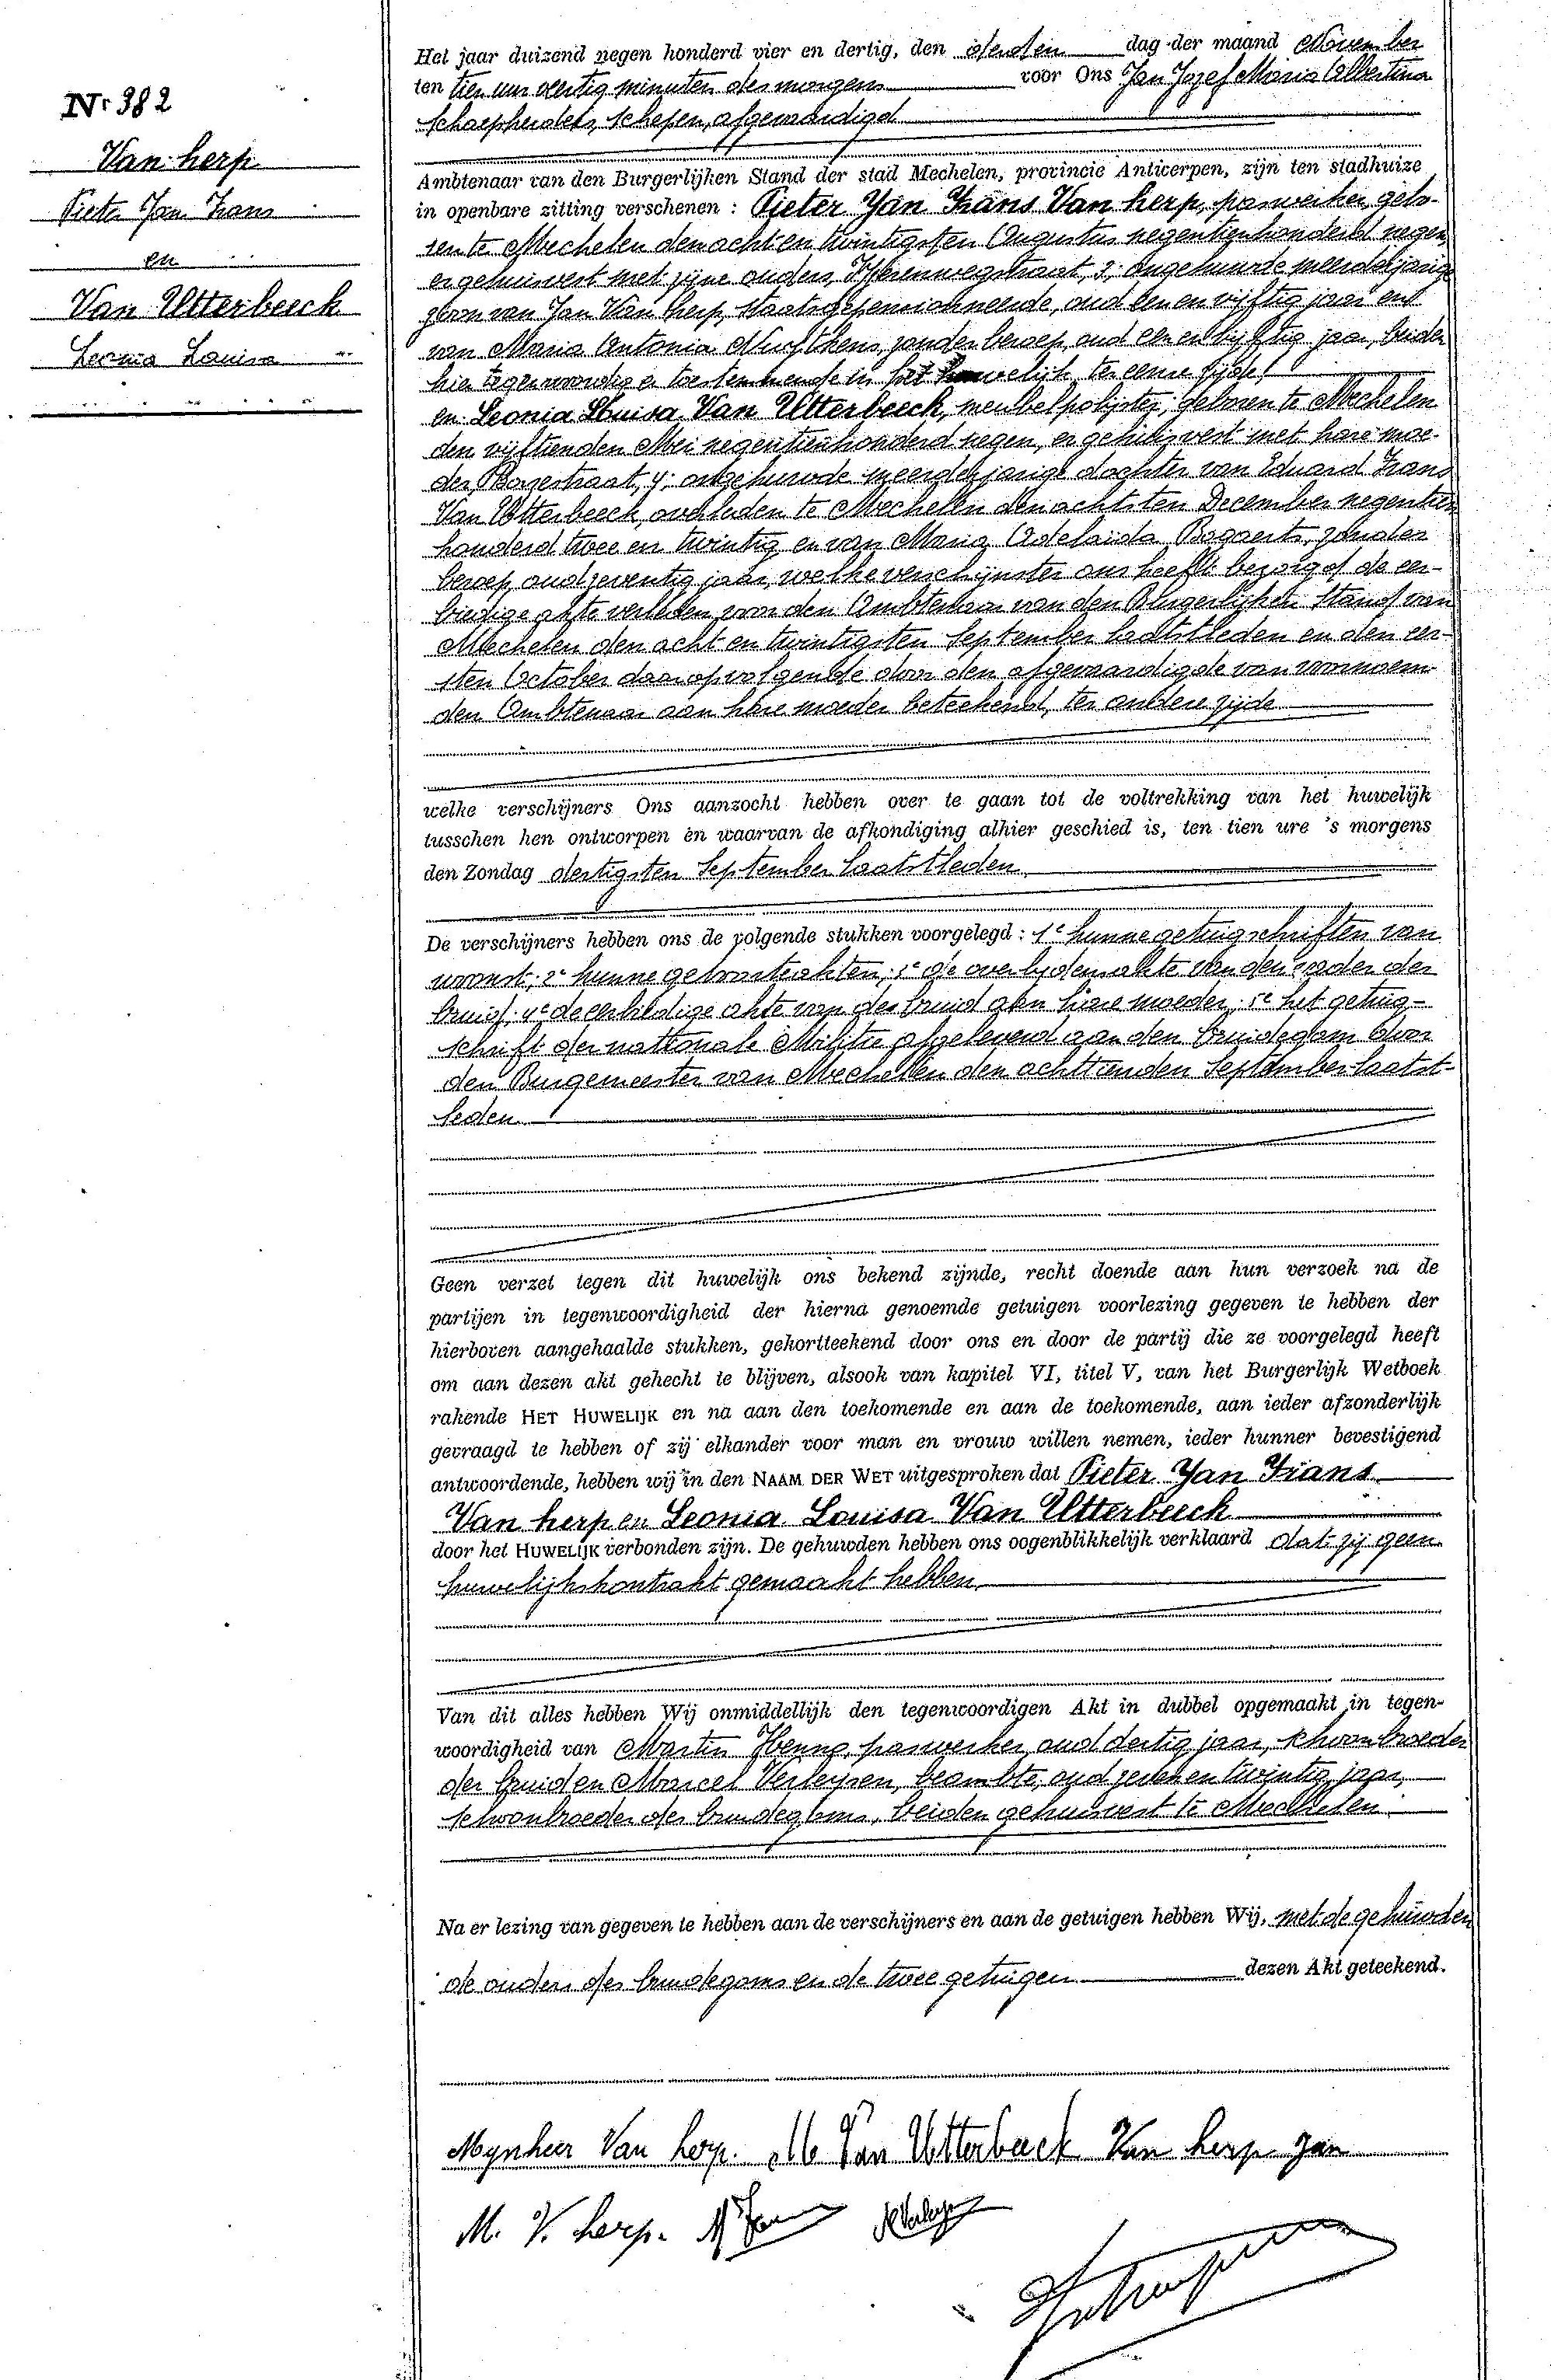 Nr 382
Van herp
Pieter Jan Frans
en
Van Utterbeeck
Leonia Louisa
Het jaar duizend negen honderd vier en dertig, den derden dag der maand November
ten tien uur dertig minuten des morgens voor Ons Jan Jozef Maria Albertina
Schaepherders, schepen, afgevaardigd
Ambtenaar van den Burgerlijken Stand der stad Mechelen, provincie Antwerpen, zijn ten stadhuize
in openbare zitting verschenen : Pieter Jan Frans Van herp, paswerker, gebo-
ren te Mechelen den acht en twintigsten Augustus negentienhonderd negen,
er gehuisvest met zijne ouders, 3; ongehuwde meerderjarige
zoon van Jan Van herp, staatsgepensionneerde, oud een en vijftig jaar en
van Maria Antonia zonder beroep, oud een en vijftig jaar, beiden
hier tegenwoordig en toestemmende in het huwelijk, ter eenre zijde;
en Leonia Louisa Van Utterbeeck, meubelpolijster, geboren te Mechelen
den vijftienden Mei negentienhonderd negen, er gehuisvest met hare moe-
der, 4; ongehuwde meerderjarige dochter van Eduard Frans
Van Utterbeeck, overleden te Mechelen den achtsten December negentien
honderd twee en twintig en van Maria Adelaida Bogaerts, zonder
beroep, oud zeventig jaar, welke verschijnster ons heeft bezorgd de eer-
biedige akte verleden voor den Ambtenaar van den Burgerlijken Stand van
Mechelen den acht en twintigsten September laatstleden en den eer-
sten October daaropvolgende door den afgevaardigde van voornoem-
den Ambtenaar aan hare moeder beteekend, ter andere zijde
welke verschijners Ons aanzocht hebben over te gaan tot de voltrekking van het huwelijk
tusschen hen ontworpen en waarvan de afkondiging alhier geschied is, ten tien ure 's morgens
den Zondag dertigsten September laatstleden
De verschijners hebben ons de volgende stukken voorgelegd : 1e hunne getuigschriften van
woonst; 2e hunne geboorteakten; 3e de overlijdensakte van den vader der
bruid; 4e de eerbiedige akte van der bruid aan hare moeder; 5e het getuig-
schrift der nationale Militie afgeleverd aan den bruidegom door
den Burgemeester van Mechelen den achttienden September laatst-
leden.
Geen verzet tegen dit huwelijk ons bekend zijnde, recht doende aan hun verzoek na de
partijen in tegenwoordigheid der hierna genoemde getuigen voorlezing gegeven te hebben der
hierboven aangehaalde stukken, gekortteekend door ons en door de partij die ze voorgelegd heeft
om aan dezen akt gehecht te blijven, alsook van kapitel VI, titel V, van het Burgerlijk Wetboek
rakende HET HUWELIJK en na aan den toekomende en aan de toekomende, aan ieder afzonderlijk
gevraagd te hebben of zij elkander voor man en vrouw willen nemen, ieder hunner bevestigend
antwoordende, hebben wij in den NAAM DER WET uitgesproken dat Pieter Jan Frans
Van herp en Leonia Louisa Van Utterbeeck
door het HUWELIJK verbonden zijn. De gehuwden hebben ons oogenblikkelijk verklaard dat zij geen
huwelijkskontrakt gemaakt hebben.
Van dit alles hebben Wij onmiddellijk den tegenwoordigen Akt in dubbel opgemaakt in tegen-
woordigheid van Martin paswerker, oud dertig jaar, schoonbroeder
der bruid en Marcel Verleysen, beambte, oud zeven en twintig jaar,
schoonbroeder des bruidegoms, beiden gehuisvest te Mechelen.
Na er lezing van gegeven te hebben aan de verschijners en aan de getuigen hebben Wij, met de gehuwden
de ouders des bruidegoms en de twee getuigen dezen Akt geteekend.
Mynheer Van herp. Van Utterbeeck Van herp Jan
M. V. herp.